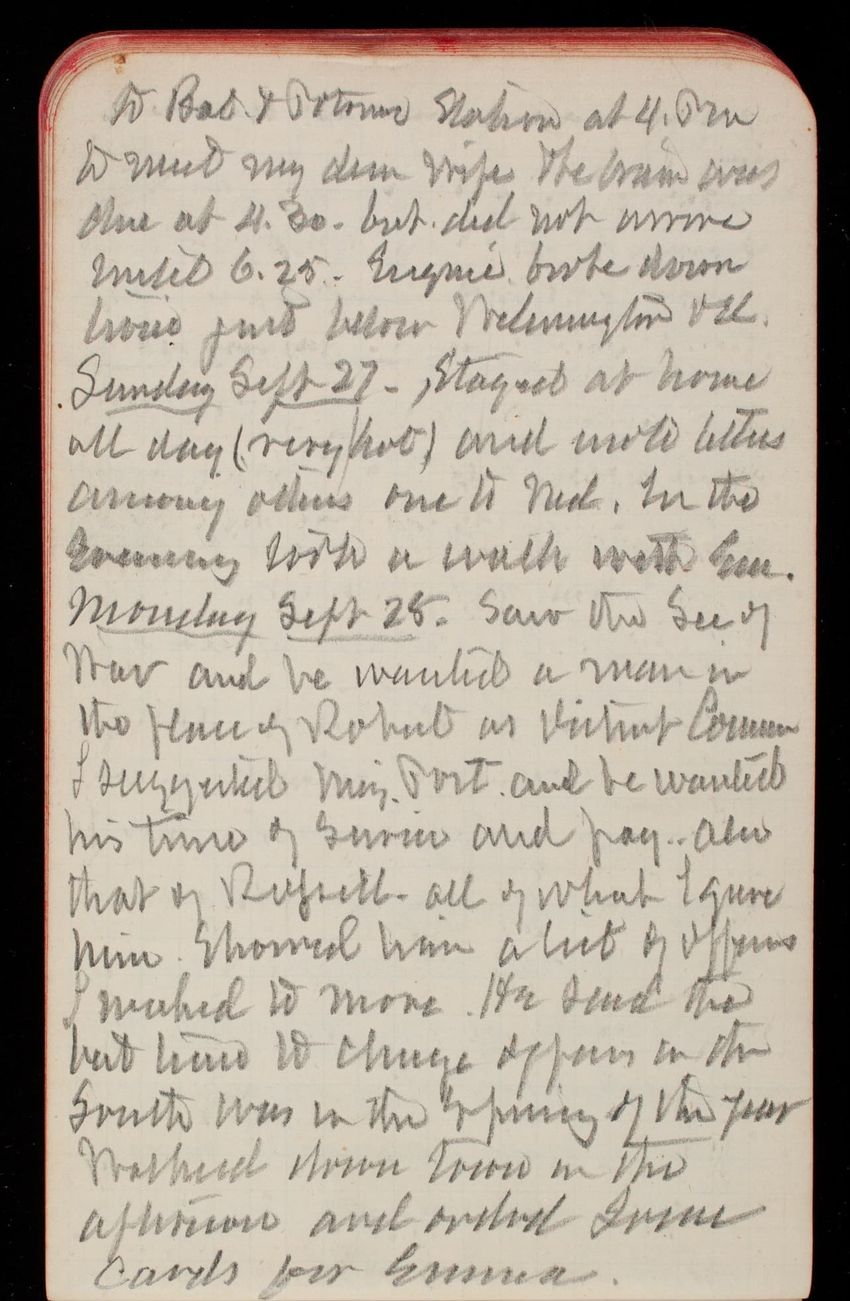 to Balt. & Potomac Station at 4. Pm
to meet my dear wife The train was
due at 4.30. but did not arrive
until 6.25. Engine broke down
just below Wilmington Del.
Sunday Sept 27 - Stayed at home
all day (very hot) and wrote letters
among others one to Ned. In the
Evening took a walk with Em.
Monday Sept 28. Saw the Sec of
War and he wanted a man in
the place of Robert as District Commr
I suggested Maj. Post. and he wanted
his time of Service and pay. also
that of Rossell. all of what I gave
him. Showed him a list of officers
I wished to move. He said the
best time to change officers in the
South was in the Spring of the year
Walked down town in the
afternoon and ordered some
cards for Emma.